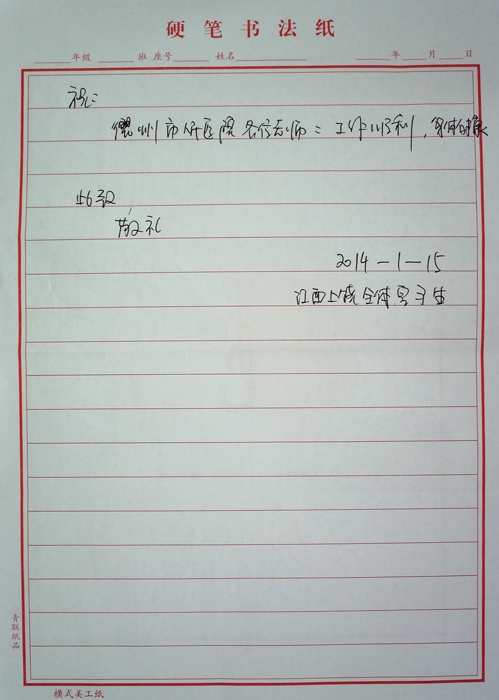 硬笔书法纸
年级 班 座号 姓名 年 月 日
祝：
州市中医院各位老师：工作顺利，身体健康
此致
敬礼
2014-1-15
江西上饶全体实习生
青联纸品
横式美工纸